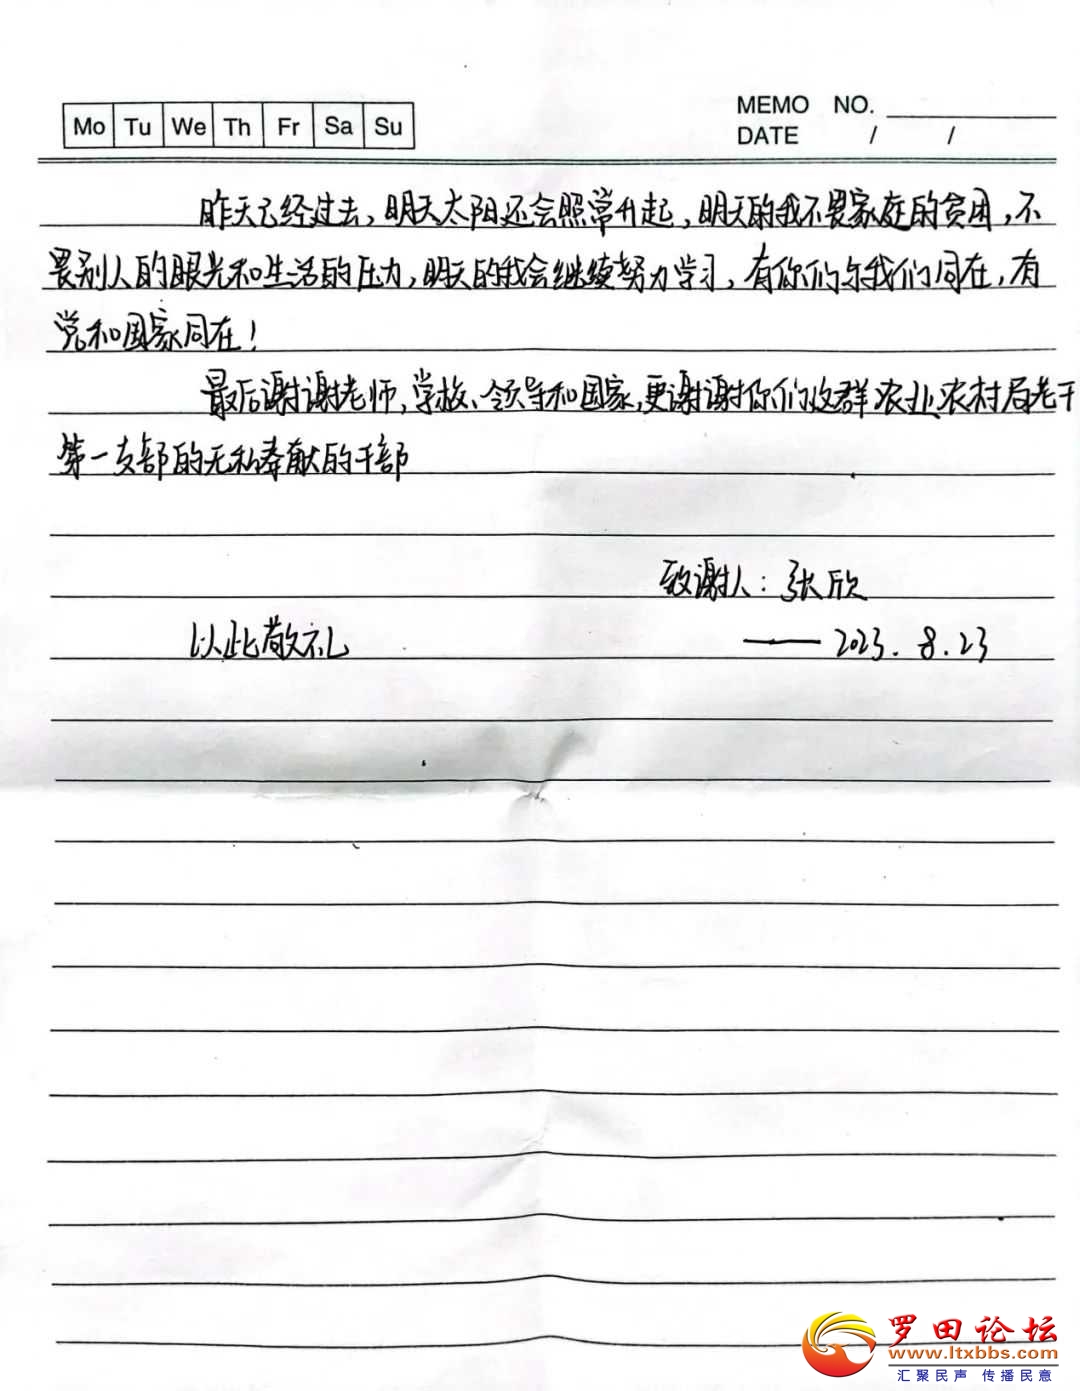 Mo Tu We Th Fr Sa Su
MEMO NO.
DATE / /
昨天已经过去，明天太阳还会照常升起，明天的我不畏家庭的贫困，不
畏别人的眼光和生活的压力，明天的我会继续努力学习，有你们与我们同在，有
党和国家同在！
最后谢谢老师，学校、领导和国家，更谢谢你们这群农业农村局老干
第一支部的无私奉献的干部
致谢人：张欣
以此敬礼
—— 2023.8.23
罗田论坛
www.ltxbbs.com
汇聚民声 传播民意